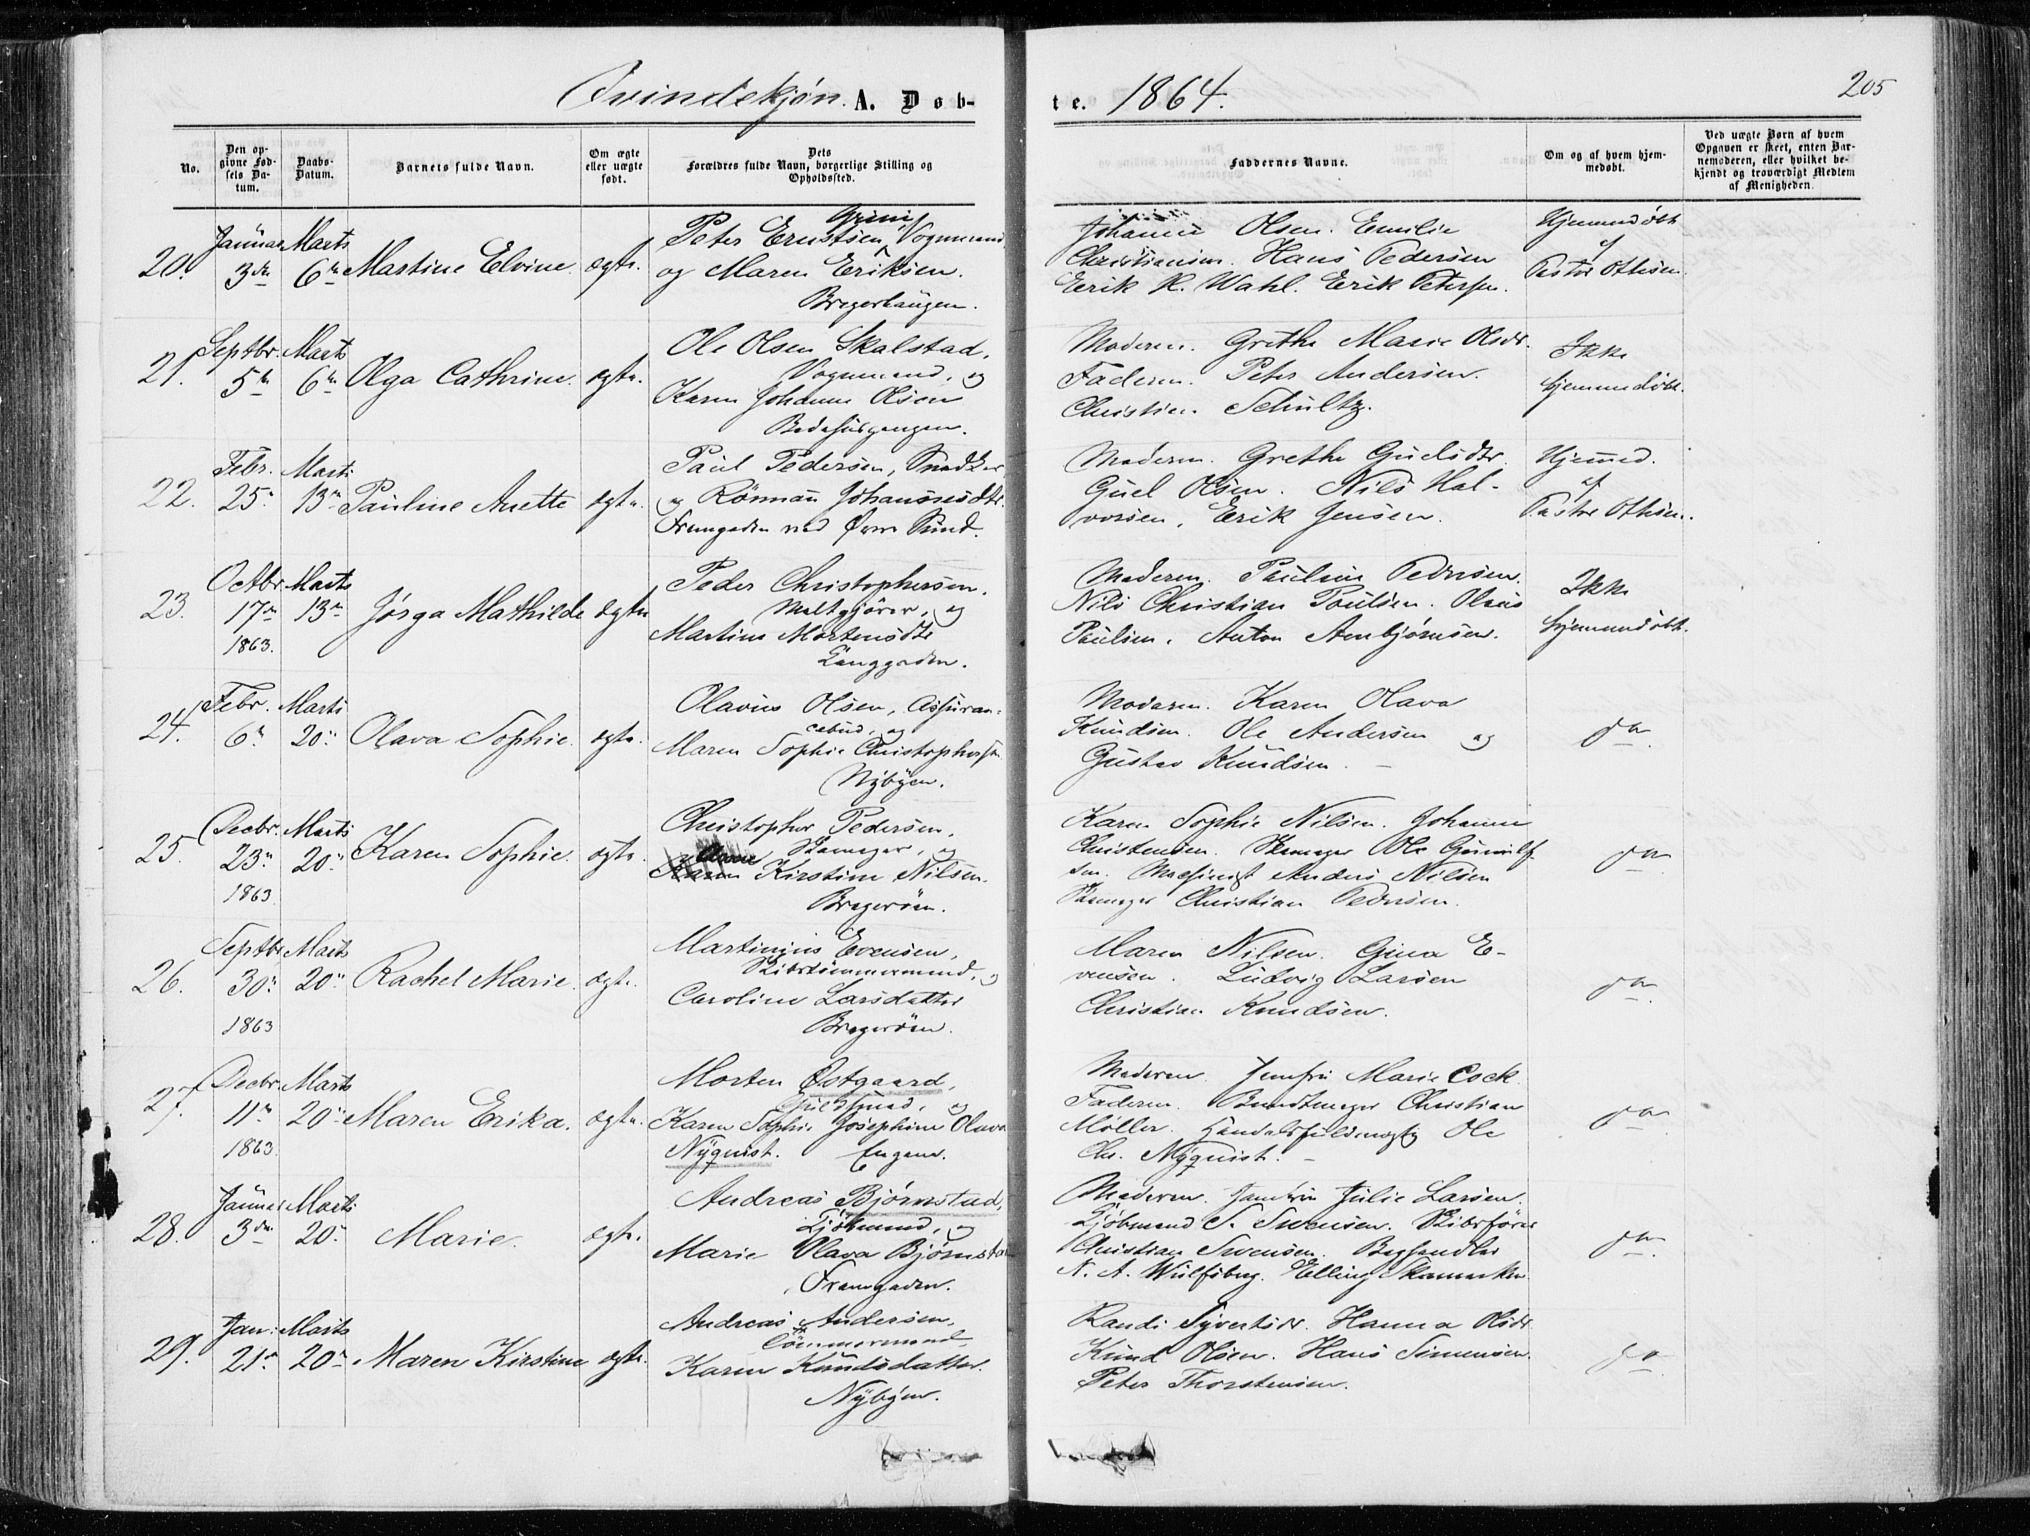 Qvindekjøn. A. Døb-
te. 1864.
205
No.
Den op-
givne Fød-
sels Da-
tum.
Daabs-
Datum.
Barnets fulde Navn.
Om ægte
eller uægte
født.
Dets
Forældres fulde Navn, borgerlige Stilling og
Opholdssted.
Faddernes Navne.
Om og af hvem hjem-
medøbt.
Ved uægte Børn af hvem
Opgaven er skeet, enten Bar-
nemoderen, eller hvilket be-
kjendt og troværdigt Medlem
af Menigheden.
20.
Januar
3die
Marts
6te
Martine Elvine.
ægte.
Peter Ernstsen Grini, Vognmand
og Maren Eriksen.
Bragerhaugen.
Johanne Olsen. Emilie
Christiansen. Hans Pedersen
Eerik H. Wahl. Eerik Petersen.
Hjemmedøbt
af
Pastor Othesen.
21.
Septbr.
5te
Marts
6te
Olga Cathrine.
ægte.
Ole Olsen Skalstad,
Vognmand, og
Karen Johanne Olsen
Bedehusgangen.
Moderen. Grethe Marie Olsdr.
Faderen. Peter Andersen.
Christian Schultz.
Ikke
hjemmedøbt.
22.
Febr.
25
Marts
13de
Pauline Anette
ægte.
Paul Pedersen, Snedker
og Rönnau Johannesdtr.
Fremgaden ved Øvre Sund.
Moderen. Grethe Gulsdtr.
Guel Olsen. Nils Hal-
vorsen. Erik Jensen.
Hjemmed.
af
Pastor Othesen.
23.
Octbr.
17de
1863.
Marts
13de
Jørga Mathilde
ægte
Peder Christophersen,
Maltgjører, og
Martine Mortensdtr
Langgaden.
Moderen. Pauline Pedersen.
Nils Christian Poulsen. Olaus
Paulsen. Anton Arnbjørnsen.
Ikke
hjemmedøbt.
24.
Febr.
6te
Marts
20de
Olava Sophie.
ægte.
Olavus Olsen, Assuran-
cebud, og
Maren Sophie Christophersen
Nybyen.
Moderen. Karen Olava
Knudsen. Ole Andersen og
Gustav Knudsen.
do
25.
Decbr.
23de
1863
Marts
20de
Karen Sophie.
ægte.
Christopher Pedersen,
Skomager, og
Anne Kirstine Nilsen.
Bragerøen.
Karen Sophie Nilsen. Johanne
Christensen. Skomager Ole Gunulf-
sen. Maschinist Anders Nilsen
Skomager Christian Pedersen.
do
26.
Septbr
30
1863
Marts
20de
Rachel Marie.
ægte.
Martinius Evensen,
Skibstømmermand, og
Caroline Larsdatter
Bragerøen.
Maren Nilsen. Gina E-
vensen. Ludvig Larsen
Christian Knudsen.
do
27.
Decbr.
11te
1863
Marts
20de
Maren Erika.
ægte.
Morten Østgaard,
og
Karen Sophie Josephine Olava
Nyquist. Engene.
Moderen. Jomfru Marie Cock.
Faderen. Bundtmager Christian
Møller. Handelsfuldmægtig Ole
Chr. Nyquist.
do
28.
Januar
3die
Marts
20de
Marie.
ægte.
Andreas Bjørnstad,
og
Marie Olava Bjørnstad
Fremgaden.
Moderen. Jomfru Julie Larsen.
S. Svensen. Skibsfører
Christian Svensen. Boghandler
N. A. Wulfsberg. Elling
do
29.
Jan:
21de
Marts
20de
Maren Kirstine
ægte.
Andreas Andersen,
Tömmermand,
Karen Knudsdatter.
Nybyen.
Randi Syvertsdr. Hanna Olsdr.
Knud Olsen. Hans Simensen.
Peter Thorstensen.
do